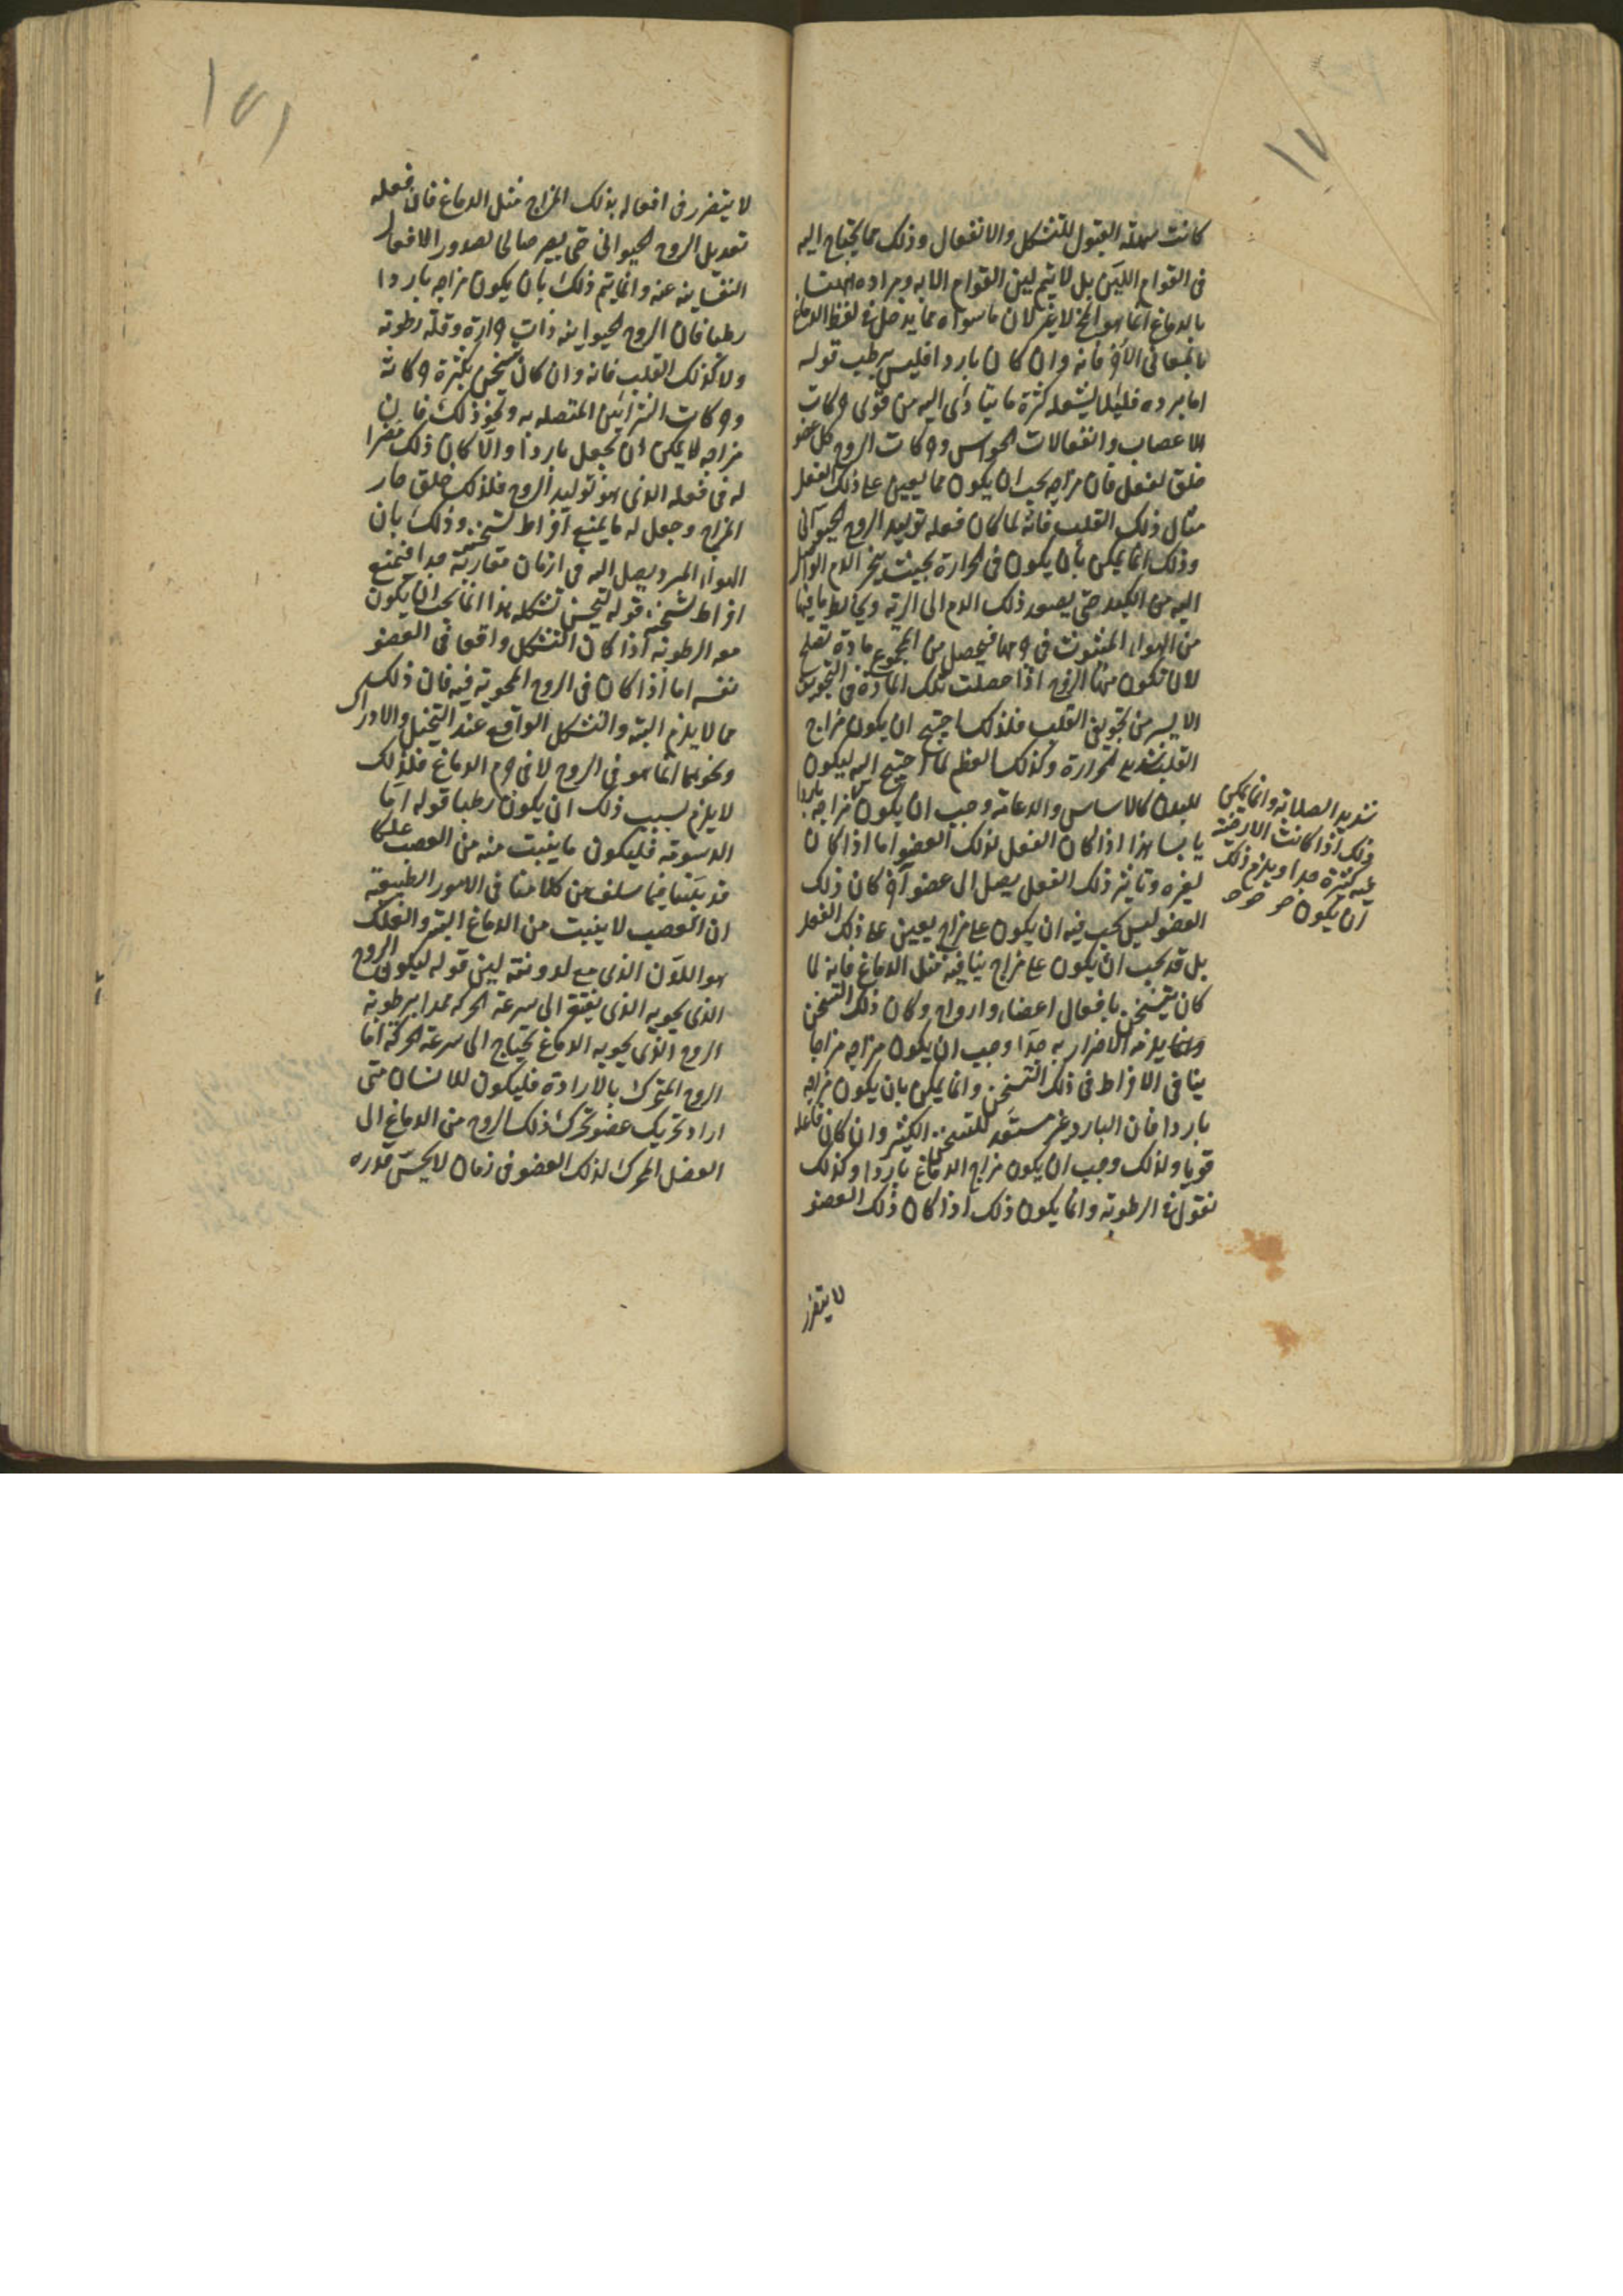 ١٧
كانت سهلة القبول للتشكل والانفعال وذلك مما يحتاج اليه
فى القوام اللين بل لا يتم لين القوام الا به ومراده ههنا
بالدماغ انما هو المخ لا غير لان ما سواه مما يدخل فى لفظ الدماغ
بالمعانى الاخر فانه وان كان باردا فليس برطب قوله
اما برده فلئلا يشعله كثرة ما يتأدى اليه من قوى حركات
الاعصاب وانفعالات الحواس وحركات الروح كل عضو
خلق لفعل فان مزاجه يجب ان يكون مما يعين على ذلك الفعل
مثال ذلك القلب فانه لما كان فعله توليد الروح الحيوانى
وذلك انما يمكن بان يكون فى الحرارة بحيث يبخر الدم الواصل
اليه من الكبد حتى يصعد ذلك الدم الى الرية ويخالط ما فيها
من الهواء المبثوث فى جرمها فيحصل من المجموع مادة تصلح
لان تكون منها الروح اذا حصلت تلك المادة فى التجويف
الايسر من تجويفى القلب فلذلك احتيج ان يكون مزاج
القلب شديد الحرارة وكذلك العظم لما احتيج اليه ليكون
للبدن كالاساس والدعامة وجب ان يكون مزاجه باردا
يابسا هذا اذا كان الفعل لذلك العضو اما اذا كان
لغيره وتاثير ذلك الفعل يصل الى عضو آخر كان ذلك
العضو ليس يجب فيه ان يكون على مزاج يعين على ذلك الفعل
بل قد يجب ان يكون على مزاج ينافيه مثل الدماغ فانه لما
كان يتسخن بافعال اعضاء وارواح وكان ذلك التسخن
مما يلزمه الاضرار به جدا وجب ان يكون مزاجه مزاجا
ينافى الافراط فى ذلك التسخن وانما يمكن بان يكون مزاجه
باردا فان البارد غير مستعد للتسخن الكثير وان كان فاعله
قويا ولذلك وجب ان يكون مزاج الدماغ باردا وكذلك
نقول فى الرطوبة وانما يكون ذلك اذا كان ذلك العضو
لا يتضرر
شديد الصلابة وانما يمكن
ذلك اذا كانت الارضية
فيه كثيرة جدا ويلزم ذلك
ان يكون
١٧١
لا يتضرر فى افعاله بذلك المزاج مثل الدماغ فان فعله
تعديل الروح الحيوانى حتى يصير صالحا لصدور الافعال
النفسانية عنه وانما يتم ذلك بان يكون مزاجه باردا
رطبا فان الروح الحيوانية ذات حرارة وقلة رطوبة
ولا كذلك القلب فانه وان كان يتسخن بكثرة حركاته
وحركات الشرائين المتصلة به ونحو ذلك فان
مزاجه لا يمكن ان يجعل باردا والا كان ذلك مضرا
له فى فعله الذى هو توليد الروح فلذلك خلق حار
المزاج وجعل له ما يمنع افراط تسخنه وذلك بان
الهواء المبرد يصل اليه فى ازمان متقاربة جدا فيمنع
افراط تسخنه قوله ليحسن تشكله هذا انما يجب ان يكون
معه الرطوبة اذا كان التشكل واقعا فى العضو
نفسه اما اذا كان فى الروح المحوية فيه فان ذلك
مما لا يلزم البتة والتشكل الواقع عند التخيل والادراك
ونحوهما انما هو فى الروح لا فى جرم الدماغ فلذلك
لا يلزم بسبب ذلك ان يكون رطبا قوله اما
الدسومة فليكون ما ينبت منه من العصب علكا
قد بينا فيما سلف من كلامنا فى الامور الطبيعية
ان العصب لا ينبت من الدماغ البتة والعلك
هو اللدن الذى مع لدونته لين قوله ليكون الروح
الذى يحويه الذى يفتقر الى سرعة الحركة ممدا برطوبة
الروح الذى يحويه الدماغ يحتاج الى سرعة الحركة اما
الروح المتحرك بالارادة فليكون للانسان متى
اراد تحريك عضو تحرك ذلك الروح من الدماغ الى
العضل المحرك لذلك العضو فى زمان لا يحس قدره